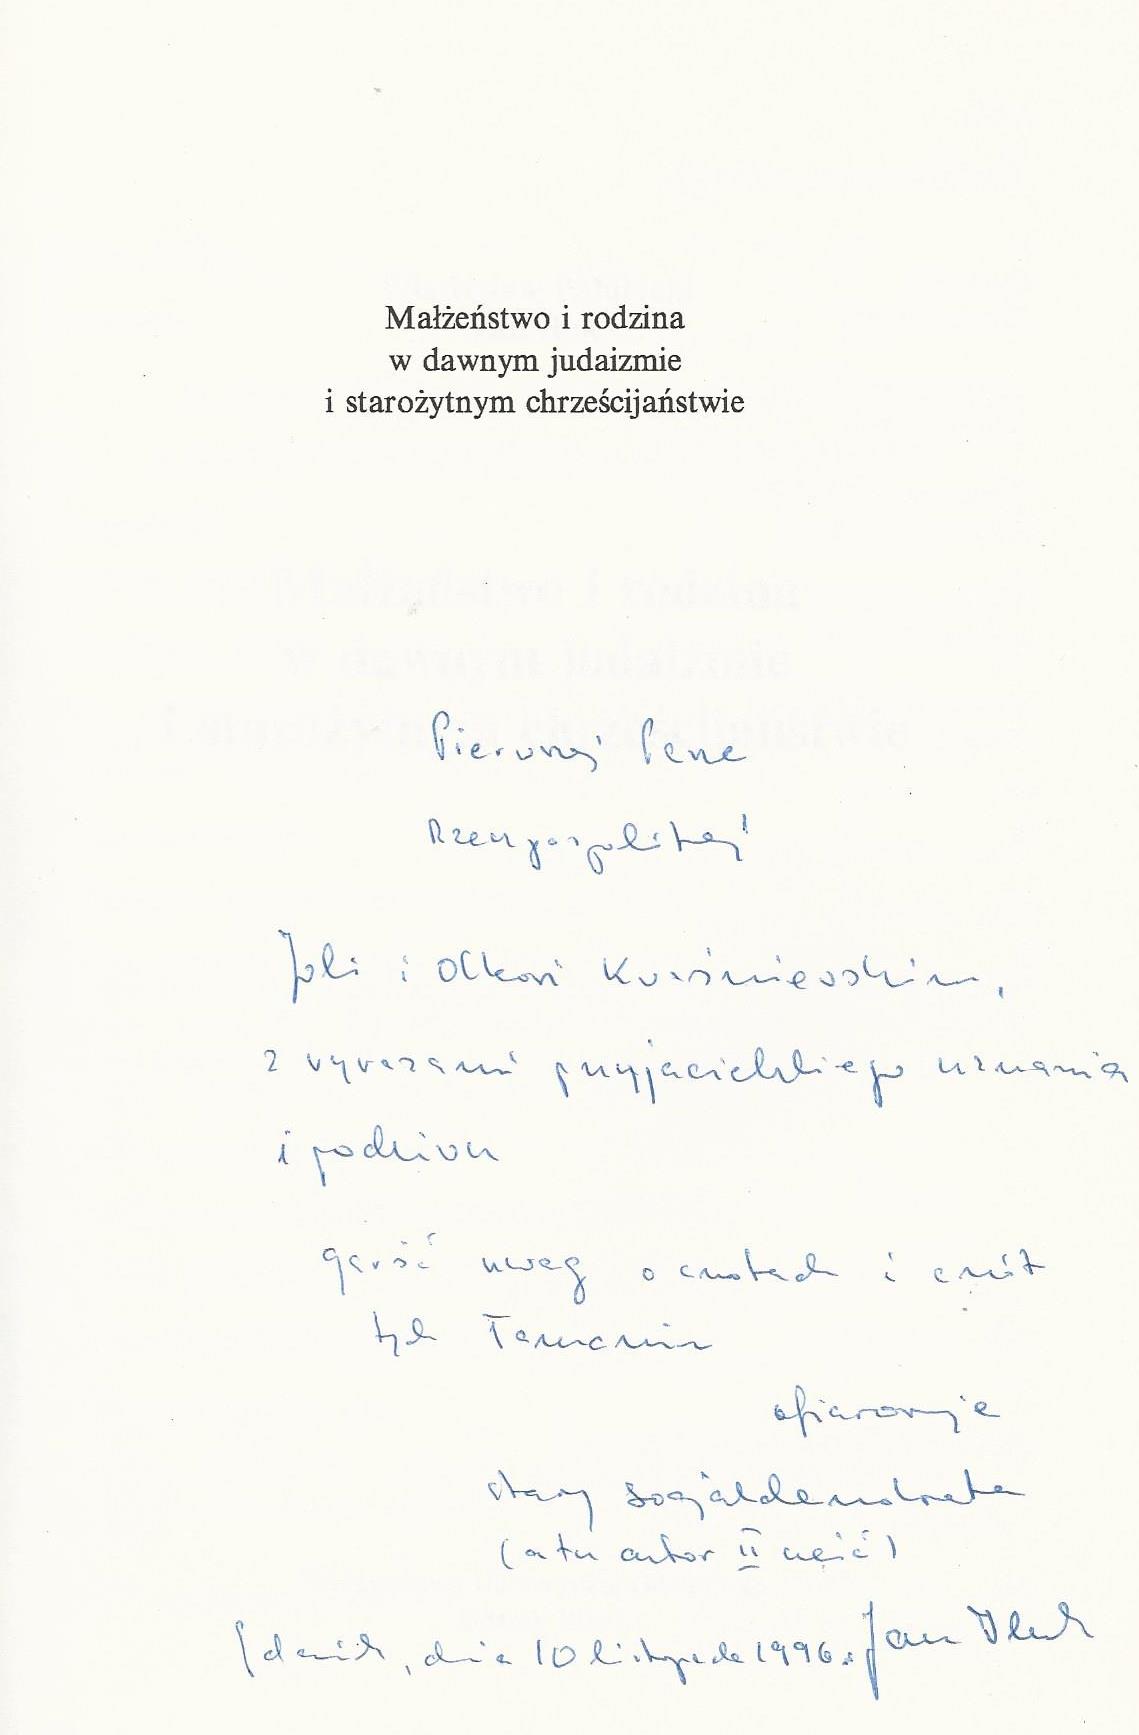 Małżeństwo i rodzina
w dawnym judaizmie
i starożytnym chrześcijaństwie
Pierwszej Parze
Rzeczypospolitej
Joli i Olkowi Kwaśniewskim,
z wyrazami przyjacielskiego uznania
i podziwu
garść uwag o cnotach i
tych
ofiarowuje
stary socjaldemokrata
(a tu autor II części)
Gdańsk, dnia 10 listopada 1996. Jan Iluk